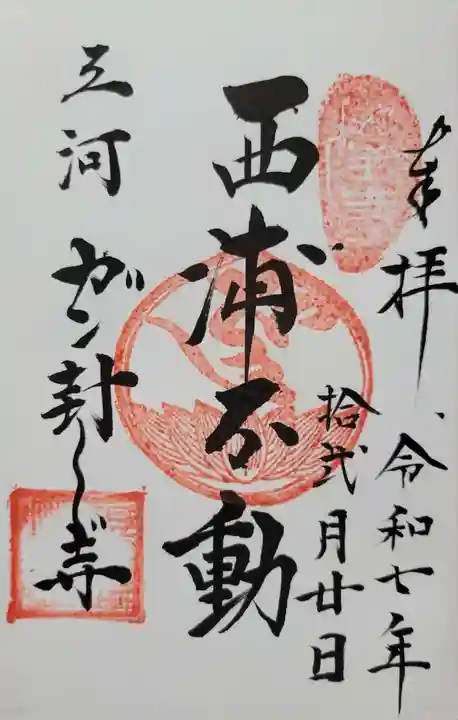 奉拝、令和七年
拾弐月廿日
西浦不動
三河ガン封じ寺